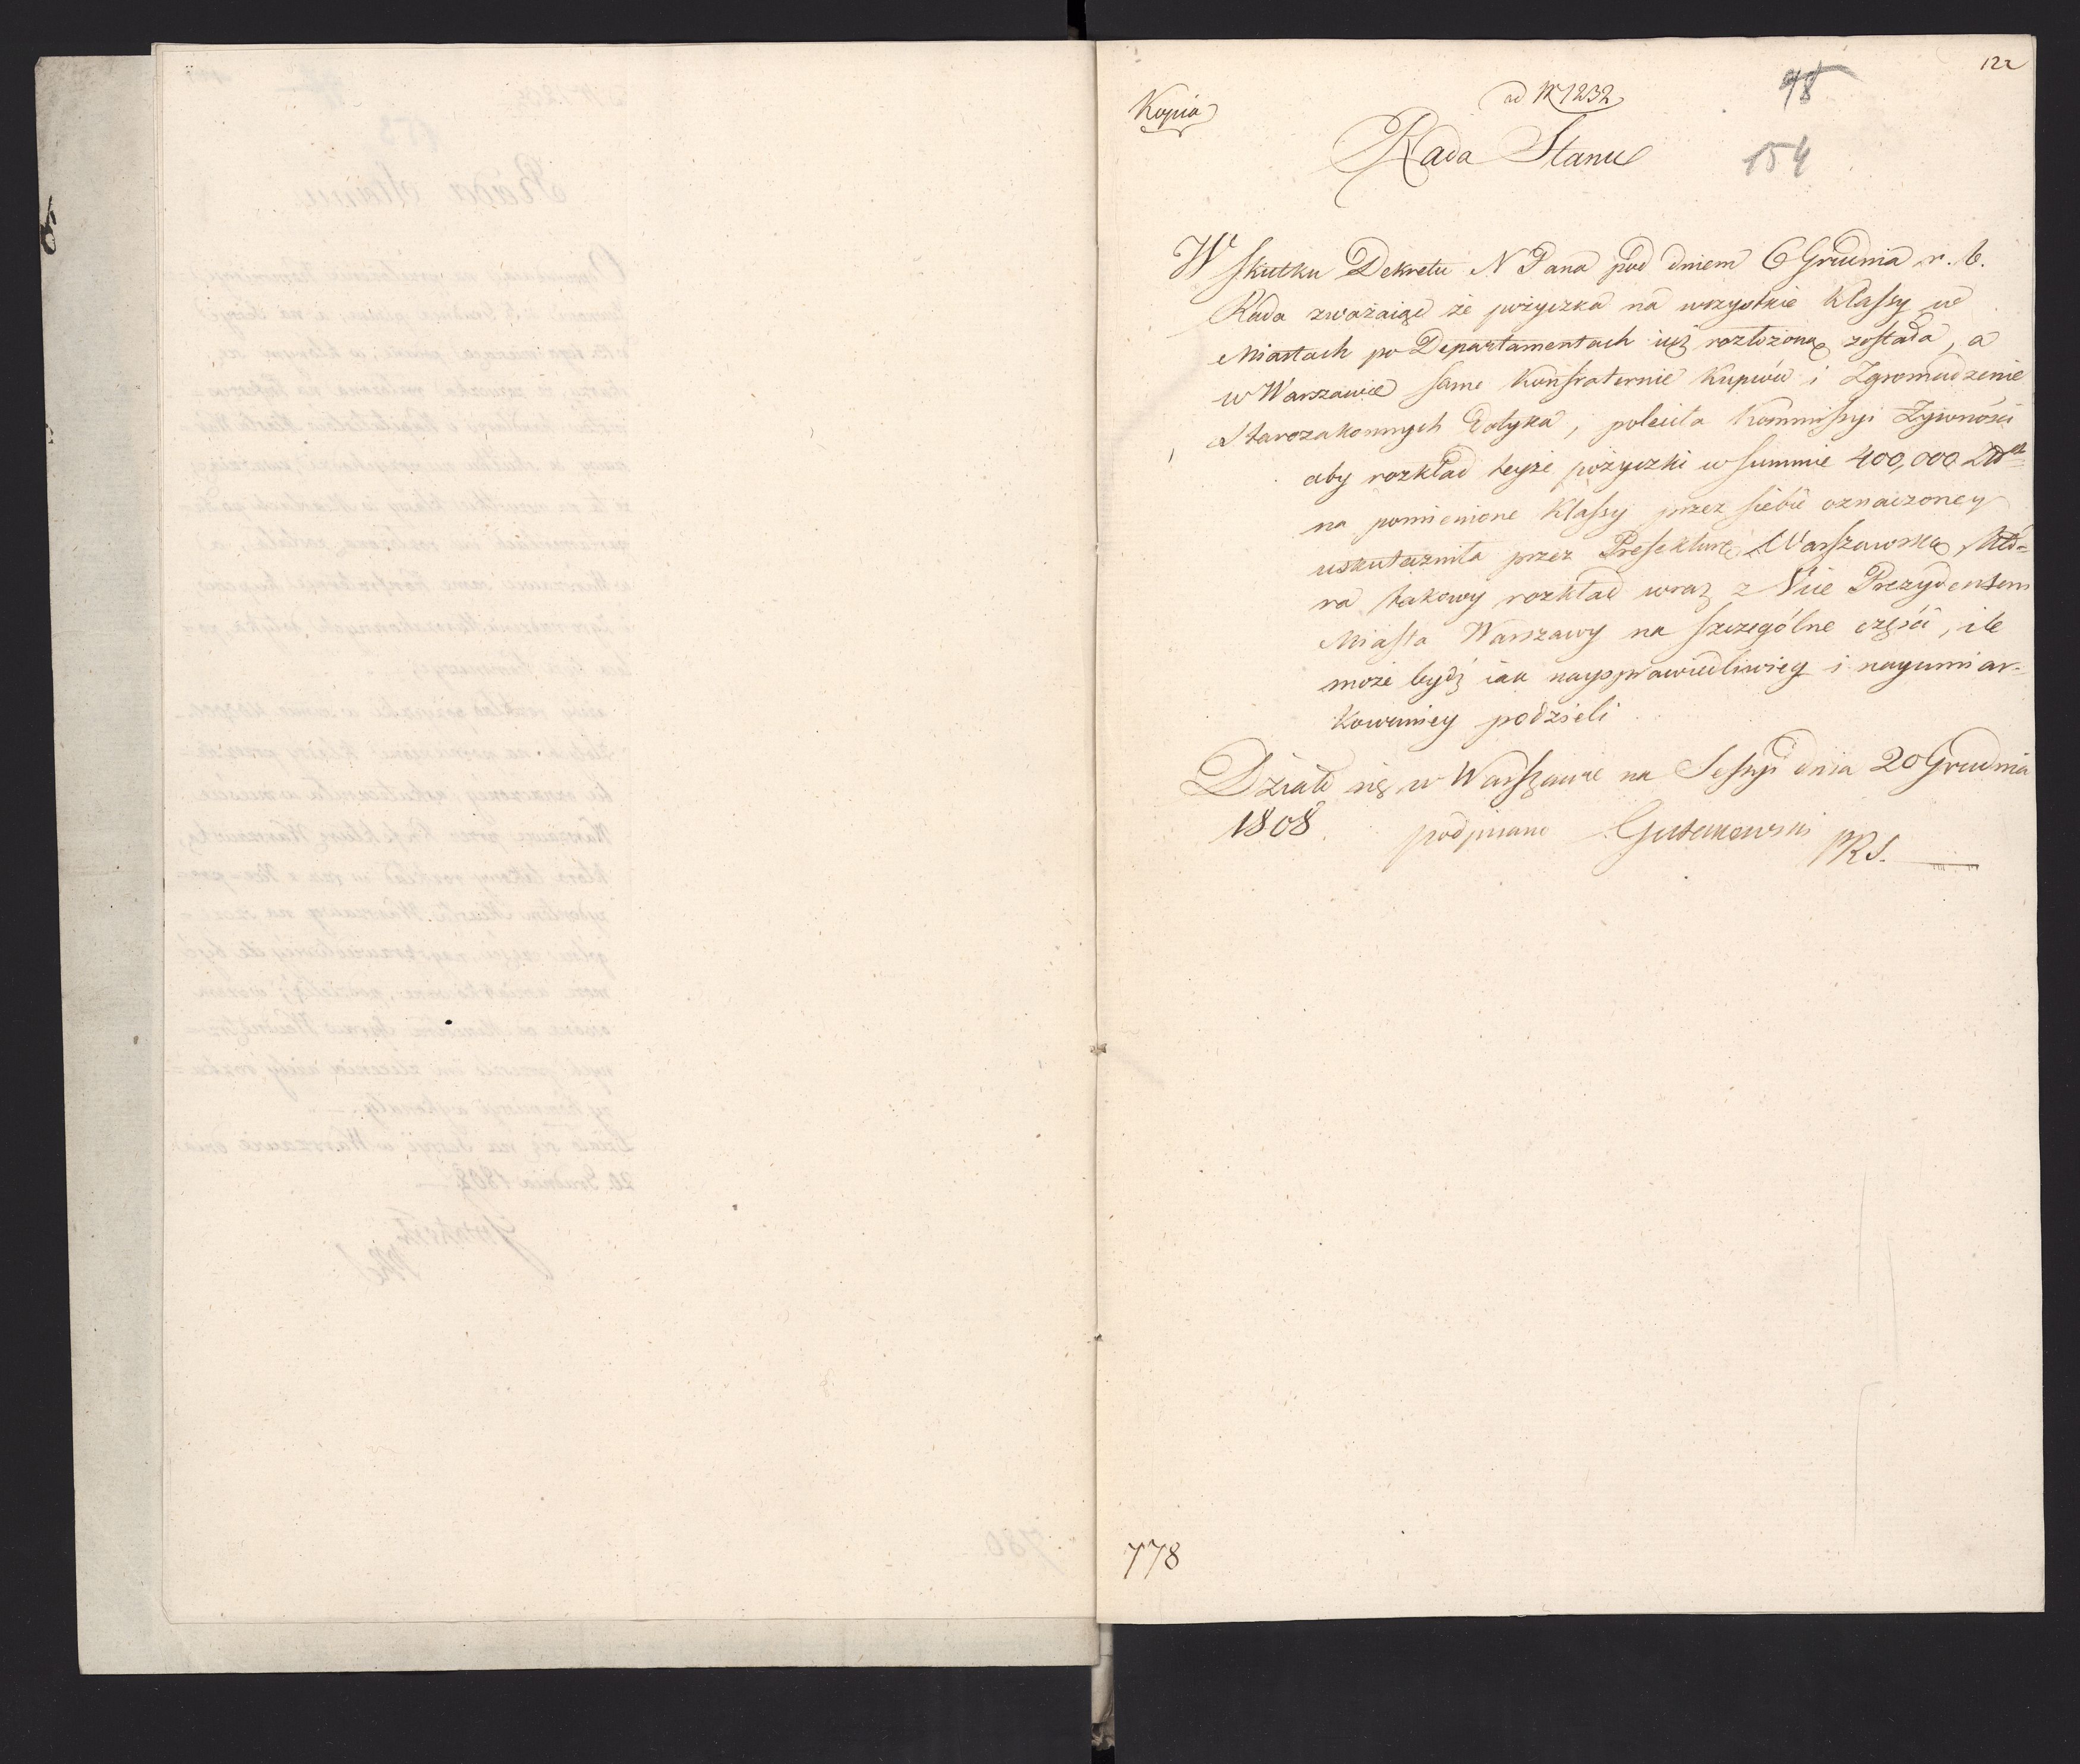 122
Kopia
ad N 1232
98
Rada Stanu
154
W skutku Dekretu N Pana pod dniem 6 Grudnia r. b.
Rada zważaiąc że pożyczka na wszystkie Klassy we
Miastach po Departamentach iuż rozłożoną została, a
w Warszawie same Konfraternie Kupców i Zgromadzenie
Starozakonnych dotyka, poleciła Kommissyi Żywności
aby rozkład teyże pożyczki w summie 400,000 Złł
na pomienione Klassy przez siebie oznaczoney
uskuteczniła przez Prefekturę Warszawską któ=
ra takowy rozkład wraz z Vice Prezydentem
Miasta Warszawy na szczególne części, ile
może bydź iak naysprawiedliwiey i nayumiar-
kowaniey podzieli
Działo się w Warszawie na Sessyi dnia 20 Grudnia
1808. podpisano Gutakowski
PRS.
778